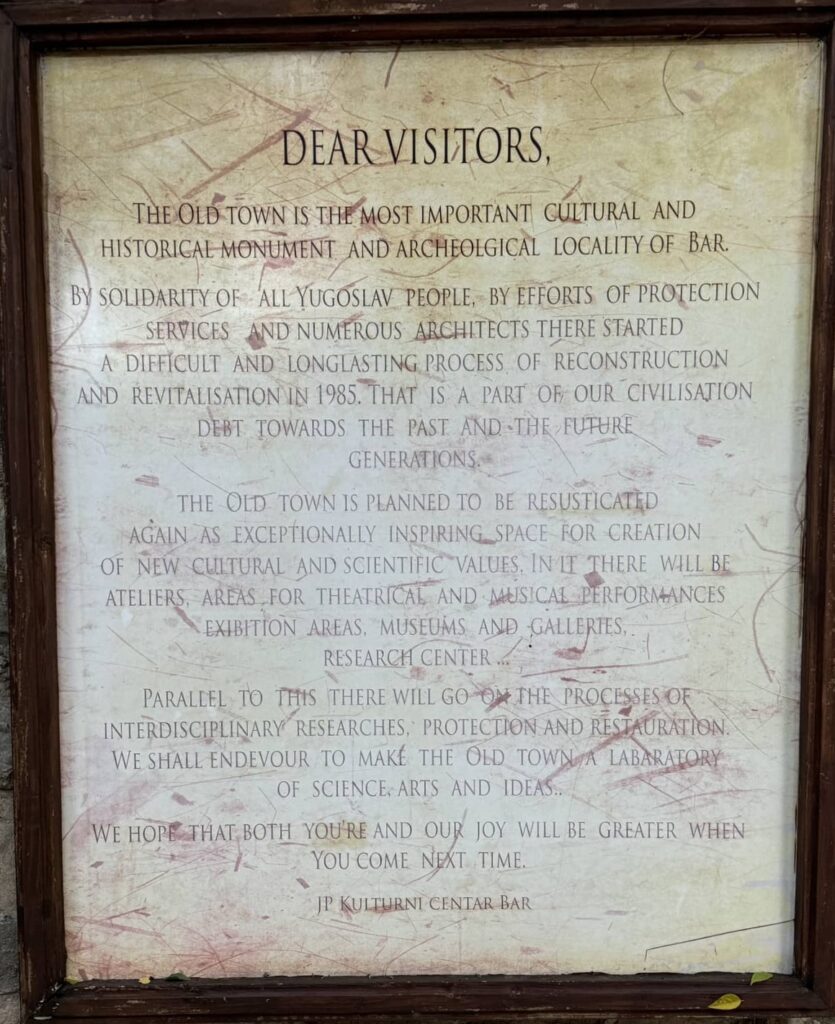 DEAR VISITORS,
THE OLD TOWN IS THE MOST IMPORTANT CULTURAL AND
HISTORICAL MONUMENT AND ARCHEOLGICAL LOCALITY OF BAR.
BY SOLIDARITY OF ALL YUGOSLAV PEOPLE, BY EFFORTS OF PROTECTION
SERVICES AND NUMEROUS ARCHITECTS THERE STARTED
A DIFFICULT AND LONGLASTING PROCESS OF RECONSTRUCTION
AND REVITALISATION IN 1985. THAT IS A PART OF OUR CIVILISATION
DEBT TOWARDS THE PAST AND THE FUTURE
GENERATIONS.
THE OLD TOWN IS PLANNED TO BE RESUSTICATED
AGAIN AS EXCEPTIONALLY INSPIRING SPACE FOR CREATION
OF NEW CULTURAL AND SCIENTIFIC VALUES. IN IT THERE WILL BE
ATELIERS, AREAS FOR THEATRICAL AND MUSICAL PERFORMANCES
EXIBITION AREAS, MUSEUMS AND GALLERIES,
RESEARCH CENTER ...
PARALLEL TO THIS THERE WILL GO ON THE PROCESSES OF
INTERDISCIPLINARY RESEARCHES, PROTECTION AND RESTAURATION.
WE SHALL ENDEVOUR TO MAKE THE OLD TOWN A LABARATORY
OF SCIENCE, ARTS AND IDEAS..
WE HOPE THAT BOTH YOU'RE AND OUR JOY WILL BE GREATER WHEN
YOU COME NEXT TIME.
JP KULTURNI CENTAR BAR